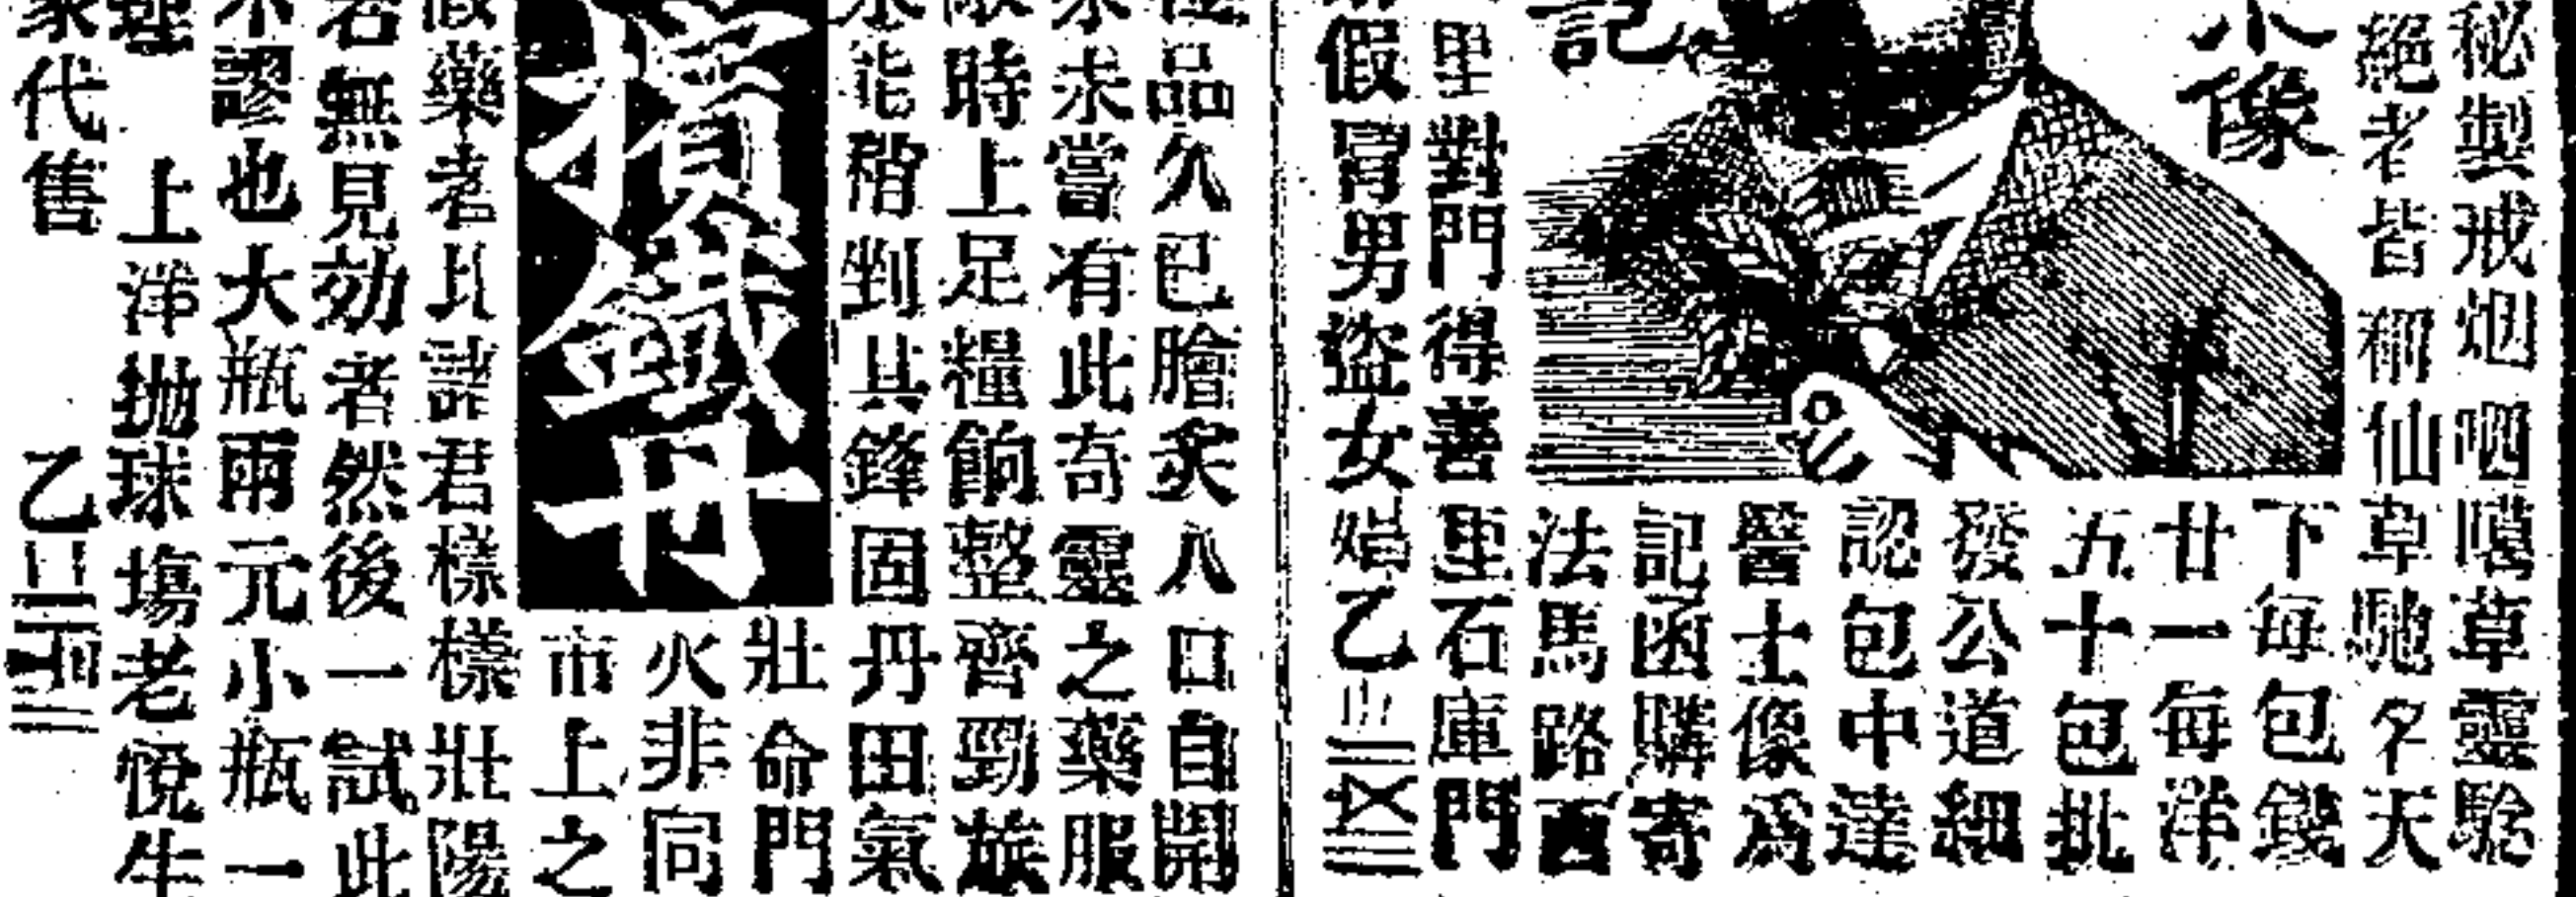 秘製戒烟㗂嘎草靈驗
絕者皆稱仙草馳名天
小像
下每包錢
廿一每洋
五十包批
發公道細
認包中達
醫士像爲
記函購寄
法馬路西
記
里對門得善里石庫門
假冒男盜女娼乙
品久已膾炙人口自開
來未嘗有此奇靈之藥服
時上足糧餉整齊勁旅
能稍剉其鋒固丹田氣
壯命門
火非同
市上之
擯鐵丹
假藥者比諸君樣樣壯陽
若無見効者然後一試此
不謬也大瓶兩元小瓶一
上洋拋球塲老悅生
家代售
乙